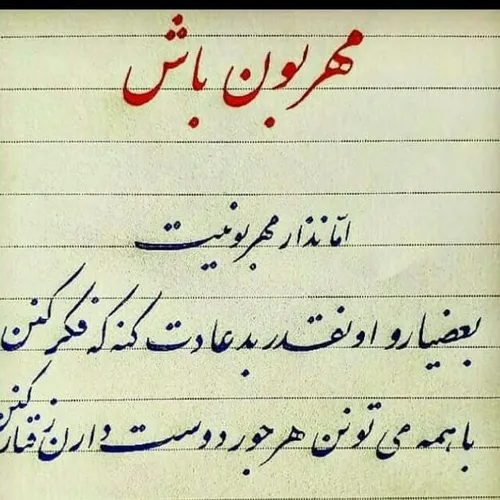 مهربون باش
امّا نذار مهربونیت
بعضیارو اونقدر بدعادت کنه که فکر کنن
با همه می تونن هرجور دوست دارن رفتار کنن